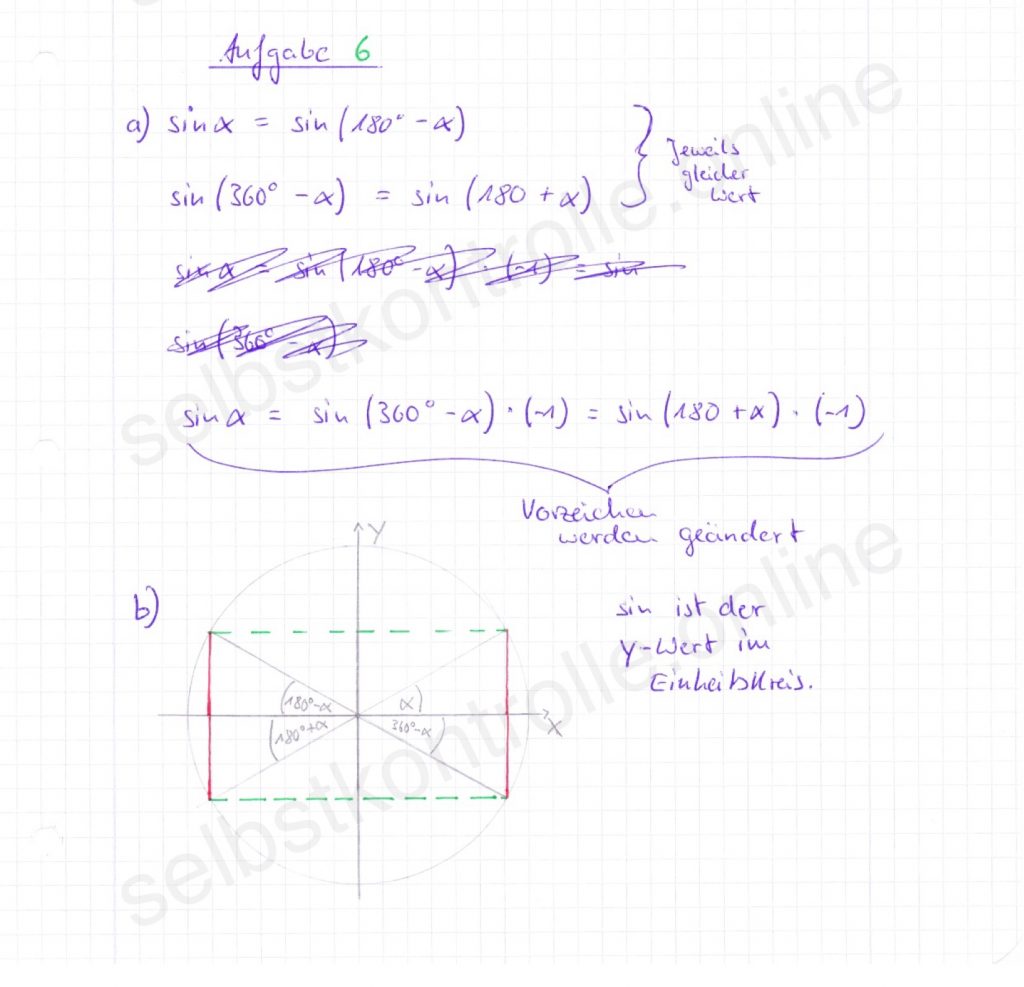 Aufgabe 6
a) sin α = sin (180° - α)
sin (360° - α) = sin (180 + α)
Jeweils
gleicher
Wert
sin α = sin (180° - α) · (-1) = sin
sin (360° - α)
sin α = sin (360° - α) · (-1) = sin (180 + α) · (-1)
Vorzeichen
werden geändert
b)
Y
180°-α
α
180°+α
360°-α
X
sin ist der
Y-Wert im
Einheitskreis.
selbstkontrolle.online
selbstkontrolle.online